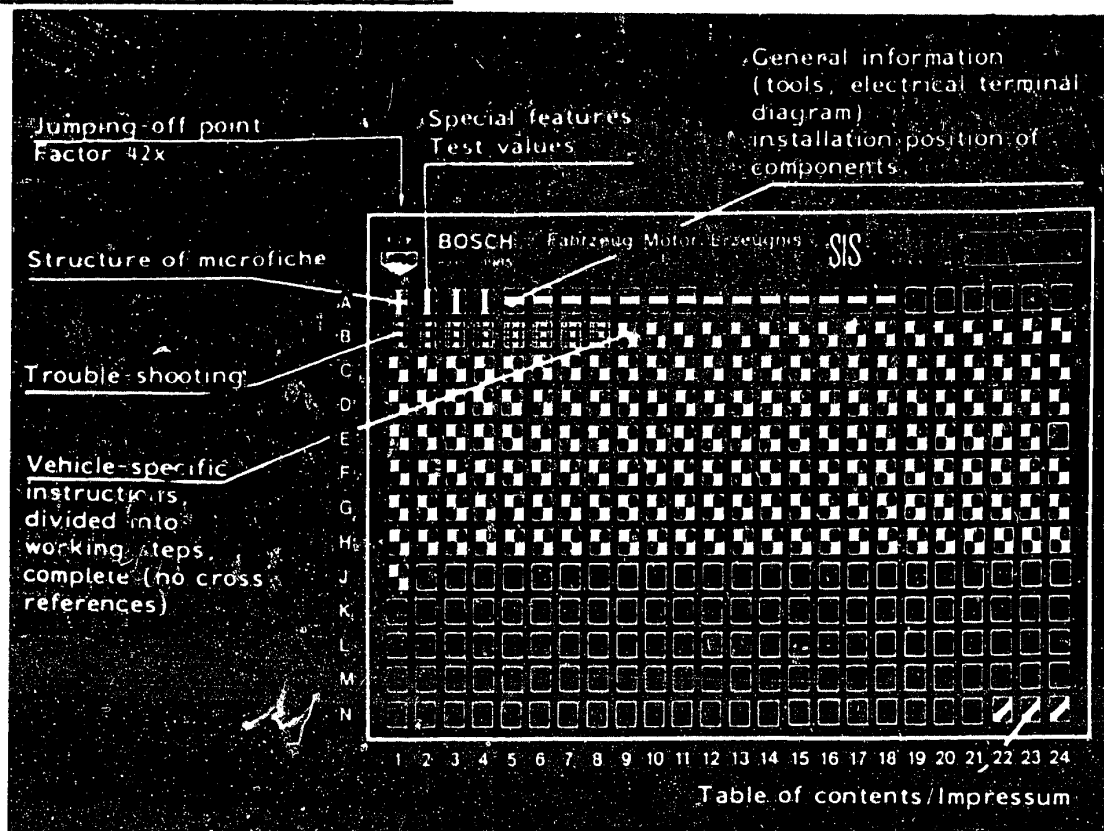 Jumping-off point
Factor 42x
Special features
Test values
General information
(tools, electrical terminal
diagram)
installation position of
components.
Structure of microfiche
BOSCH Fahrzeug Motor Erzeugnis SIS
Trouble-shooting
Vehicle-specific
instructions,
divided into
working steps,
complete (no cross
references)
A
B
C
D
E
F
G
H
J
K
L
M
N
1 2 3 4 5 6 7 8 9 10 11 12 13 14 15 16 17 18 19 20 21 22 23 24
Table of contents/Impressum